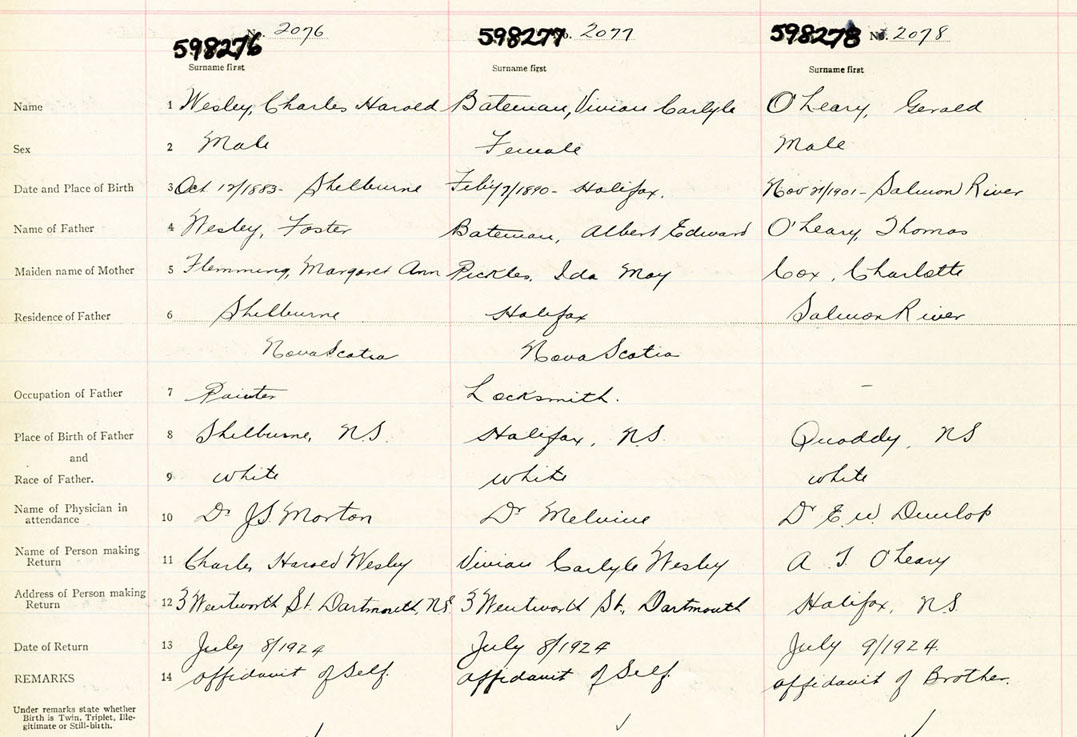 598276 No. 2076 598277 No. 2077 598278 No. 2078
Surname first Surname first Surname first
Name 1 Wesley, Charles Harold Bateman, Vivian Carlyle O'Leary, Gerald
Sex 2 Male Female Male
Date and Place of Birth 3 Oct 17/1883 - Shelburne Feby 7/1890 - Halifax. Nov 21/1901 - Salmon River
Name of Father 4 Wesley, Foster Bateman, Albert Edward O'Leary, Thomas
Maiden name of Mother 5 Flemming, Margaret Ann Pickles, Ida May Cox, Charlotte
Residence of Father 6 Shelburne Halifax Salmon River
Nova Scotia Nova Scotia
Occupation of Father 7 Painter Locksmith. -
Place of Birth of Father 8 Shelburne, NS. Halifax, NS. Quoddy, NS
and
Race of Father. 9 white white white
Name of Physician in
attendance 10 Dr J.S. Morton Dr Melvine Dr E. W. Dunlop
Name of Person making
Return 11 Charles Harold Wesley Vivian Carlyle Wesley A T O'Leary
Address of Person making
Return 12 3 Wentworth St. Dartmouth, NS. 3 Wentworth St., Dartmouth Halifax, NS.
Date of Return 13 July 8/1924 July 8/1924 July 9/1924.
REMARKS 14 affidavit of Self. affidavit of Self. affidavit of Brother.
Under remarks state whether
Birth is Twin, Triplet, Ille-
gitimate or Still-birth.